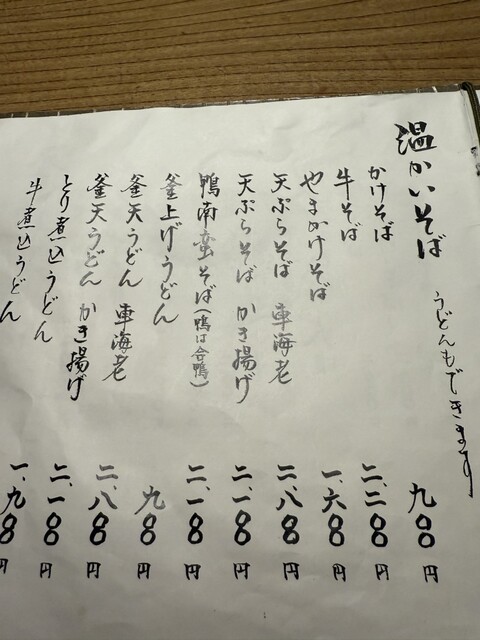 温かいそば うどんもできます
かけそば 九〇〇円
牛そば 二、二〇〇円
やまかけそば 一、六〇〇円
天ぷらそば 車海老 二、八〇〇円
天ぷらそば かき揚げ 二、一〇〇円
鴨南蛮そば(鴨は合鴨) 二、一〇〇円
釜上げうどん 九〇〇円
釜天うどん 車海老 二、八〇〇円
釜天うどん かき揚げ 二、一〇〇円
とり煮込うどん 一、九〇〇円
牛煮込うどん